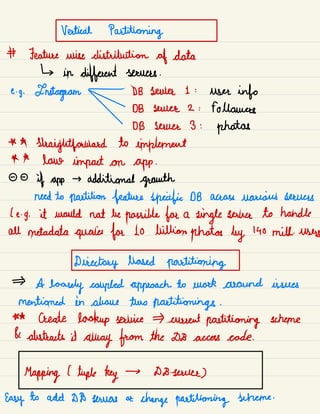 Vertical Partitioning
# Feature wise distribution of data
↳ in different servers.
e.g. Instagram DB Server 1 : user info
DB Server 2 : followers
DB Server 3 : photos
** Straightforward to implement
** low impact on app.
⊖⊖ if app → additional growth
need to partition feature specific DB across various servers
(e.g. it would not be possible for a single server to handle
all metadata queries for 10 billion photos by 140 mill users
Directory based partitioning
⇒ A loosely coupled approach to work around issues
mentioned in above two partitionings.
** Create lookup service ⇒ current partitioning scheme
& abstracts it away from the DB access code.
Mapping ( tuple key → DB server)
Easy to add DB servers or change partitioning scheme.